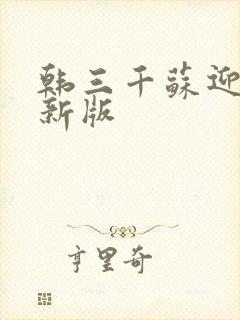 韩三千苏迎
新版
亨里奇